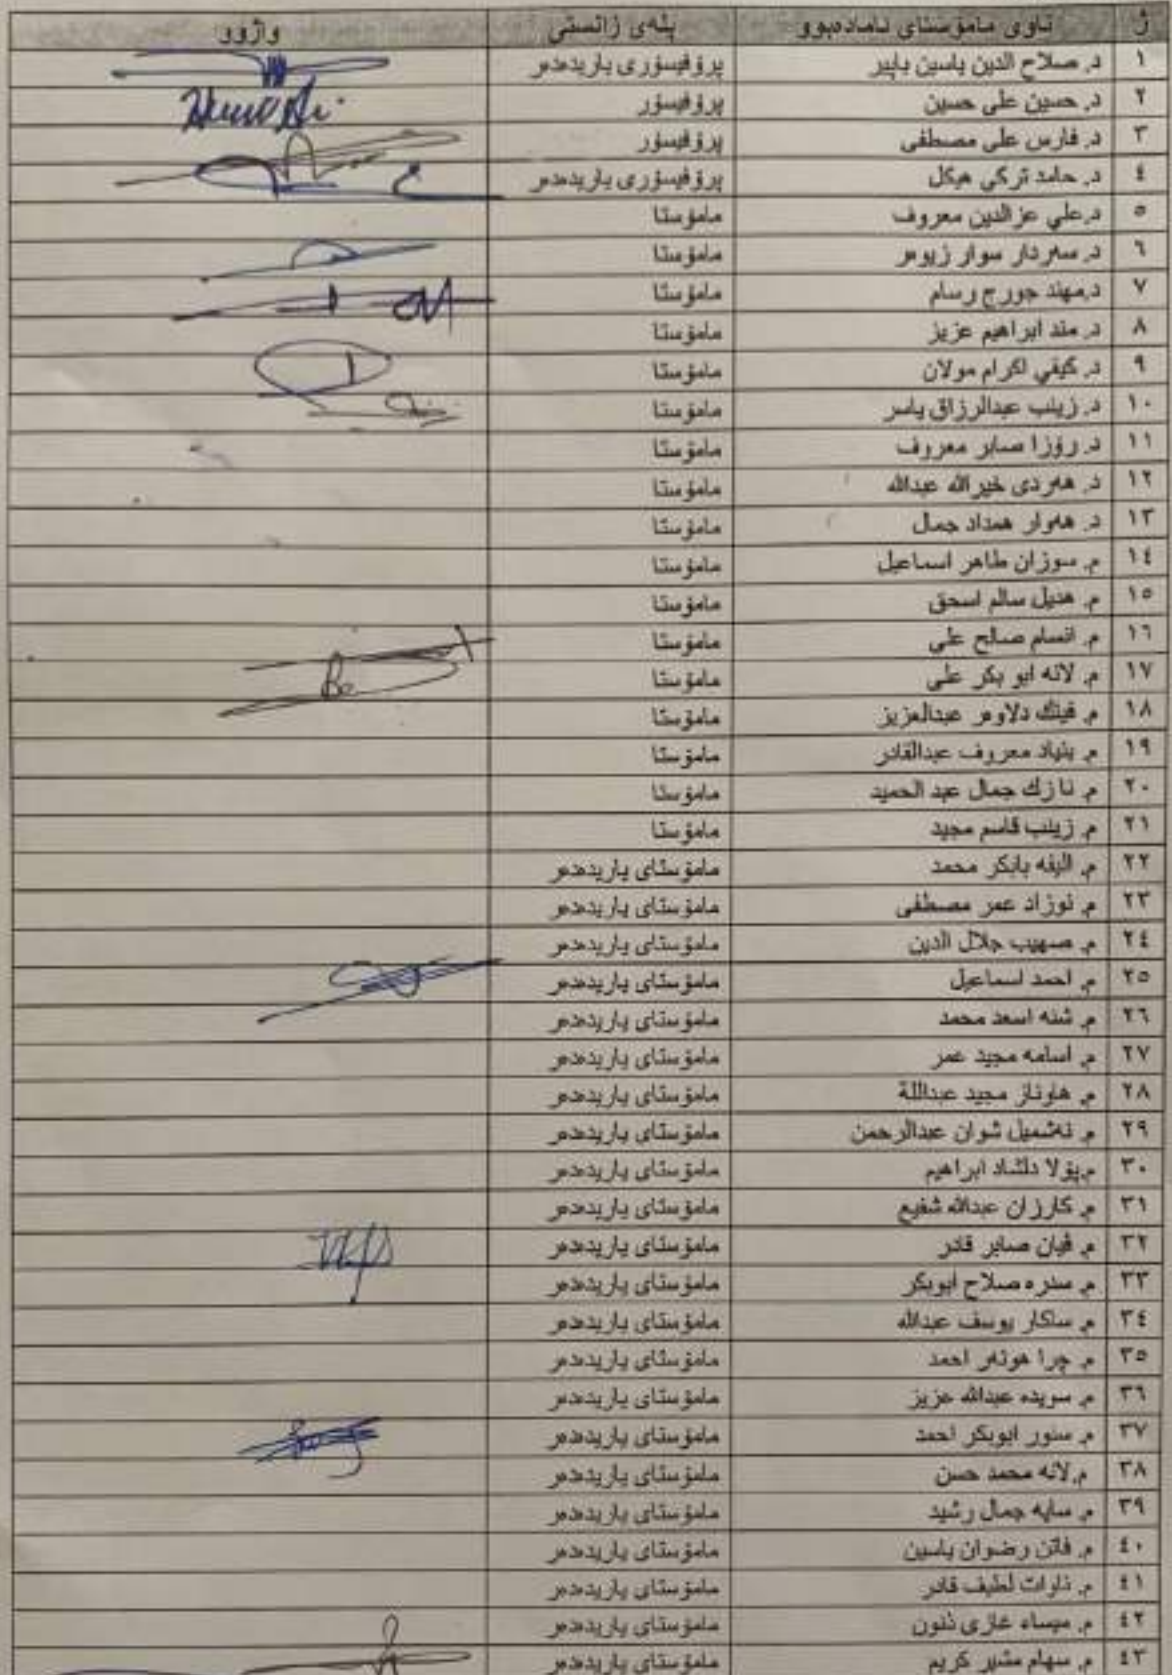 ژ ناوی مامۆستای ئامادەبوو پلەی زانستی واژوو
١ د. صلاح الدين ياسين بابير پرۆفیسۆری یاریدەدەر
٢ د. حسين على حسين پرۆفیسۆر
٣ د. فارس على مصطفى پرۆفیسۆر
٤ د. حامد تركي هيكل پرۆفیسۆری یاریدەدەر
٥ د.علي عزالدين معروف مامۆستا
٦ د. سەردار سوار زيوەر مامۆستا
٧ د.مهند جورج رسام مامۆستا
٨ د. مند ابراهيم عزيز مامۆستا
٩ د. گيفي اكرام مولان مامۆستا
١٠ د. زينب عبدالرزاق ياسر مامۆستا
١١ د. رۆزا صابر معروف مامۆستا
١٢ د. هەردى خيرالله عبدالله مامۆستا
١٣ د. هەوار همداد جمال مامۆستا
١٤ م. سوزان طاهر اسماعيل مامۆستا
١٥ م. هديل سالم اسحق مامۆستا
١٦ م. انسام صالح على مامۆستا
١٧ م. لانه ابو بكر على مامۆستا
١٨ م. فينك دلاوەر عبدالعزيز مامۆستا
١٩ م. بنياد معروف عبدالقادر مامۆستا
٢٠ م. نازك جمال عبد الحميد مامۆستا
٢١ م. زينب قاسم مجيد مامۆستا
٢٢ م. اليفه بابكر محمد مامۆستای یاریدەدەر
٢٣ م. نوزاد عمر مصطفى مامۆستای یاریدەدەر
٢٤ م. صهيب جلال الدين مامۆستای یاریدەدەر
٢٥ م. احمد اسماعيل مامۆستای یاریدەدەر
٢٦ م. شنه اسعد محمد مامۆستای یاریدەدەر
٢٧ م. اسامه مجيد عمر مامۆستای یاریدەدەر
٢٨ م. هاوناز مجيد عبداللة مامۆستای یاریدەدەر
٢٩ م. نەشميل شوان عبدالرحمن مامۆستای یاریدەدەر
٣٠ م.پۆلا دلشاد ابراهيم مامۆستای یاریدەدەر
٣١ م. كارزان عبدالله شفيع مامۆستای یاریدەدەر
٣٢ م. ڤيان صابر قادر مامۆستای یاریدەدەر
٣٣ م. سدره صلاح ابوبكر مامۆستای یاریدەدەر
٣٤ م. ساكار يوسف عبدالله مامۆستای یاریدەدەر
٣٥ م. چرا هونەر احمد مامۆستای یاریدەدەر
٣٦ م. سويده عبدالله عزيز مامۆستای یاریدەدەر
٣٧ م. سنور ابوبكر احمد مامۆستای یاریدەدەر
٣٨ م.لانه محمد حسن مامۆستای یاریدەدەر
٣٩ م. سايه جمال رشيد مامۆستای یاریدەدەر
٤٠ م. فاتن رضوان ياسين مامۆستای یاریدەدەر
٤١ م. ئاوات لطيف قادر مامۆستای یاریدەدەر
٤٢ م. ميساء غازى ذنون مامۆستای یاریدەدەر
٤٣ م. سهام مشير كريم مامۆستای یاریدەدەر